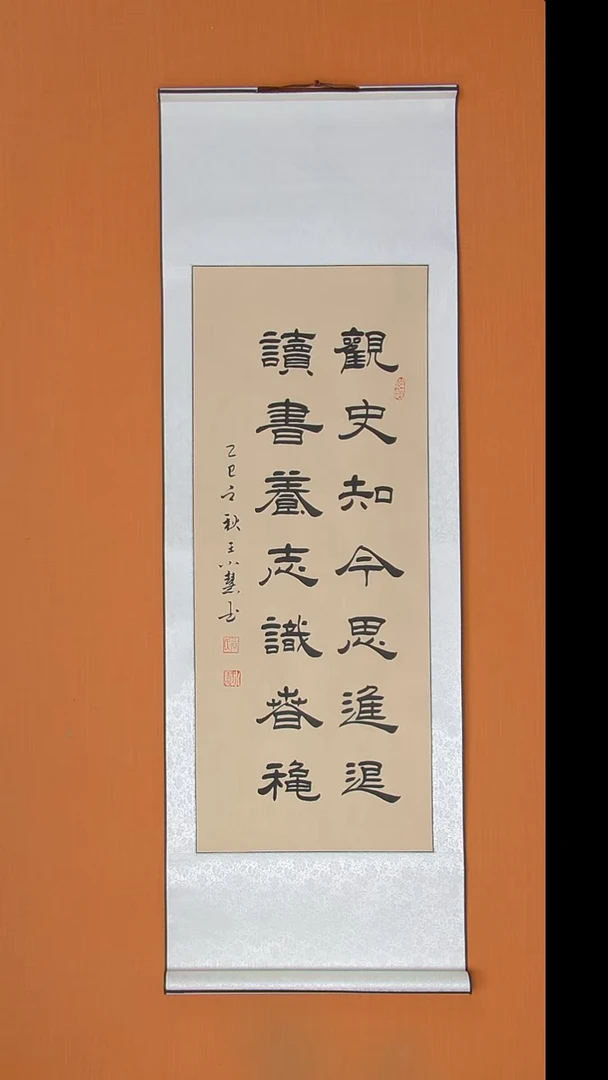 觀史知今思進退
讀書養志識春龝
乙巳之秋王小慧书